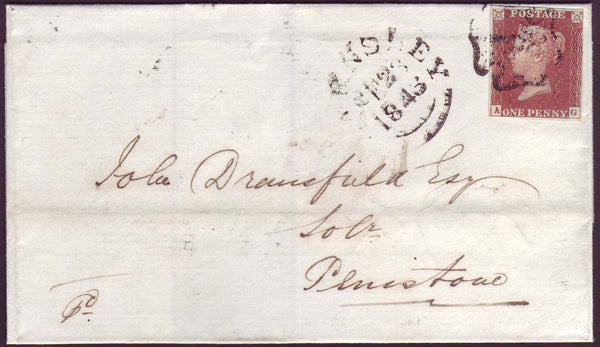 POSTAGE
A ONE PENNY G
NSLEY
1843
John Dransfield Esqr
Solr
Penistone
Pd